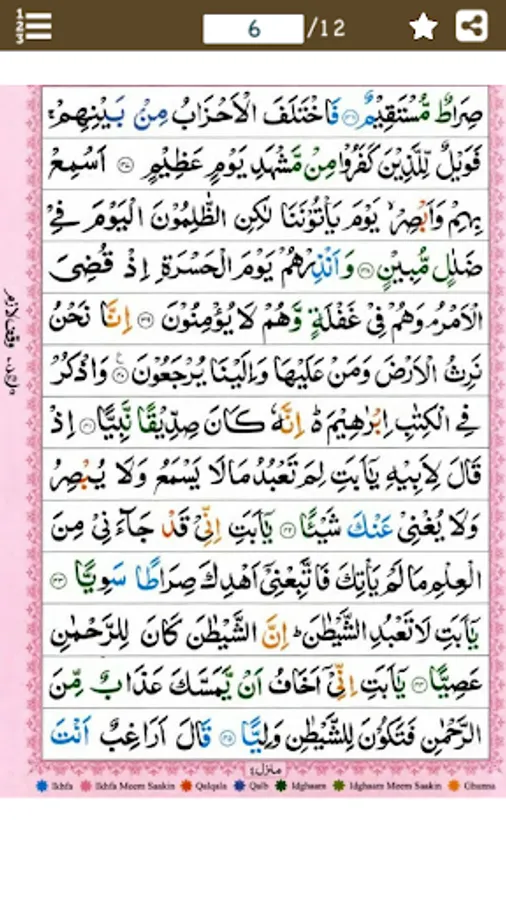 6 /12
صِرَاطٌ مُّسْتَقِيْمٌ ﴿۳۶﴾ فَاخْتَلَفَ الْاَحْزَابُ مِنْۢ بَيْنِهِمْ ۚ
فَوَيْلٌ لِّلَّذِيْنَ كَفَرُوْا مِنْ مَّشْهَدِ يَوْمٍ عَظِيْمٍ ﴿۳۷﴾ اَسْمِعْ
بِهِمْ وَاَبْصِرْ ۙ يَوْمَ يَاْتُوْنَنَا لٰكِنِ الظّٰلِمُوْنَ الْيَوْمَ فِيْ
ضَلٰلٍ مُّبِيْنٍ ﴿۳۸﴾ وَاَنْذِرْهُمْ يَوْمَ الْحَسْرَةِ اِذْ قُضِىَ
الْاَمْرُ ۘ وَهُمْ فِيْ غَفْلَةٍ وَّهُمْ لَا يُؤْمِنُوْنَ ﴿۳۹﴾ اِنَّا نَحْنُ
نَرِثُ الْاَرْضَ وَمَنْ عَلَيْهَا وَاِلَيْنَا يُرْجَعُوْنَ ﴿۴۰﴾ وَاذْكُرْ
فِي الْكِتٰبِ اِبْرٰهِيْمَ ۬ اِنَّهٗ كَانَ صِدِّيْقًا نَّبِيًّا ﴿۴۱﴾ اِذْ
قَالَ لِاَبِيْهِ يٰۤاَبَتِ لِمَ تَعْبُدُ مَا لَا يَسْمَعُ وَلَا يُبْصِرُ
وَلَا يُغْنِيْ عَنْكَ شَيْـًٔا ﴿۴۲﴾ يٰۤاَبَتِ اِنِّيْ قَدْ جَآءَنِيْ مِنَ
الْعِلْمِ مَا لَمْ يَاْتِكَ فَاتَّبِعْنِيْۤ اَهْدِكَ صِرَاطًا سَوِيًّا ﴿۴۳﴾
يٰۤاَبَتِ لَا تَعْبُدِ الشَّيْطٰنَ ؕ اِنَّ الشَّيْطٰنَ كَانَ لِلرَّحْمٰنِ
عَصِيًّا ﴿۴۴﴾ يٰۤاَبَتِ اِنِّيْۤ اَخَافُ اَنْ يَّمَسَّكَ عَذَابٌ مِّنَ
الرَّحْمٰنِ فَتَكُوْنَ لِلشَّيْطٰنِ وَلِيًّا ﴿۴۵﴾ قَالَ اَرَاغِبٌ اَنْتَ
منزل٤
Ikhfa Ikhfa Meem Saakin Qalqala Qalb Idghaam Idghaam Meem Saakin Ghunna